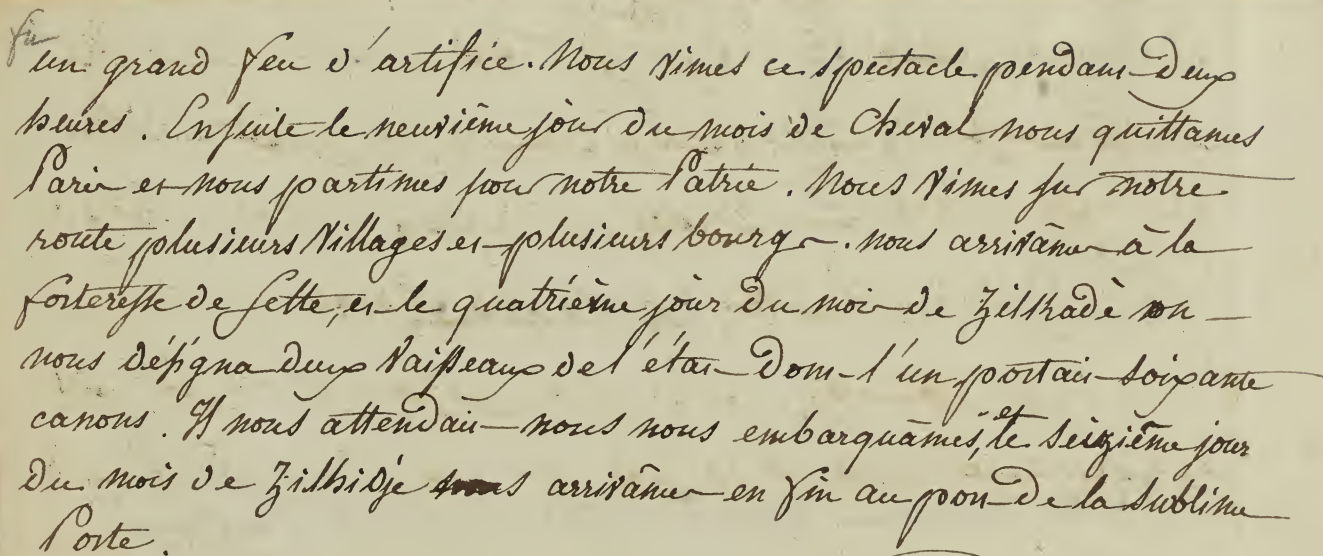 fit un grand feu d'artifice. Nous vimes ce spectacle pendant deux
heures. Ensuite le neuvième jour du mois de Cheval nous quittames
Paris et nous partimes pour notre Patrie. Nous vimes sur notre
route plusieurs Villages et plusieurs bourgs. nous arrivâmes à la
forteresse de Sette, et le quatrième jour du mois de Zilkadè on
nous désigna deux Vaisseaux de l'état dont l'un portait soixante
canons. Il nous attendait nous nous embarquâmes, et le seizième jour
du mois de Zilhidjé nous arrivâmes en fin au port de la sublime
Porte.